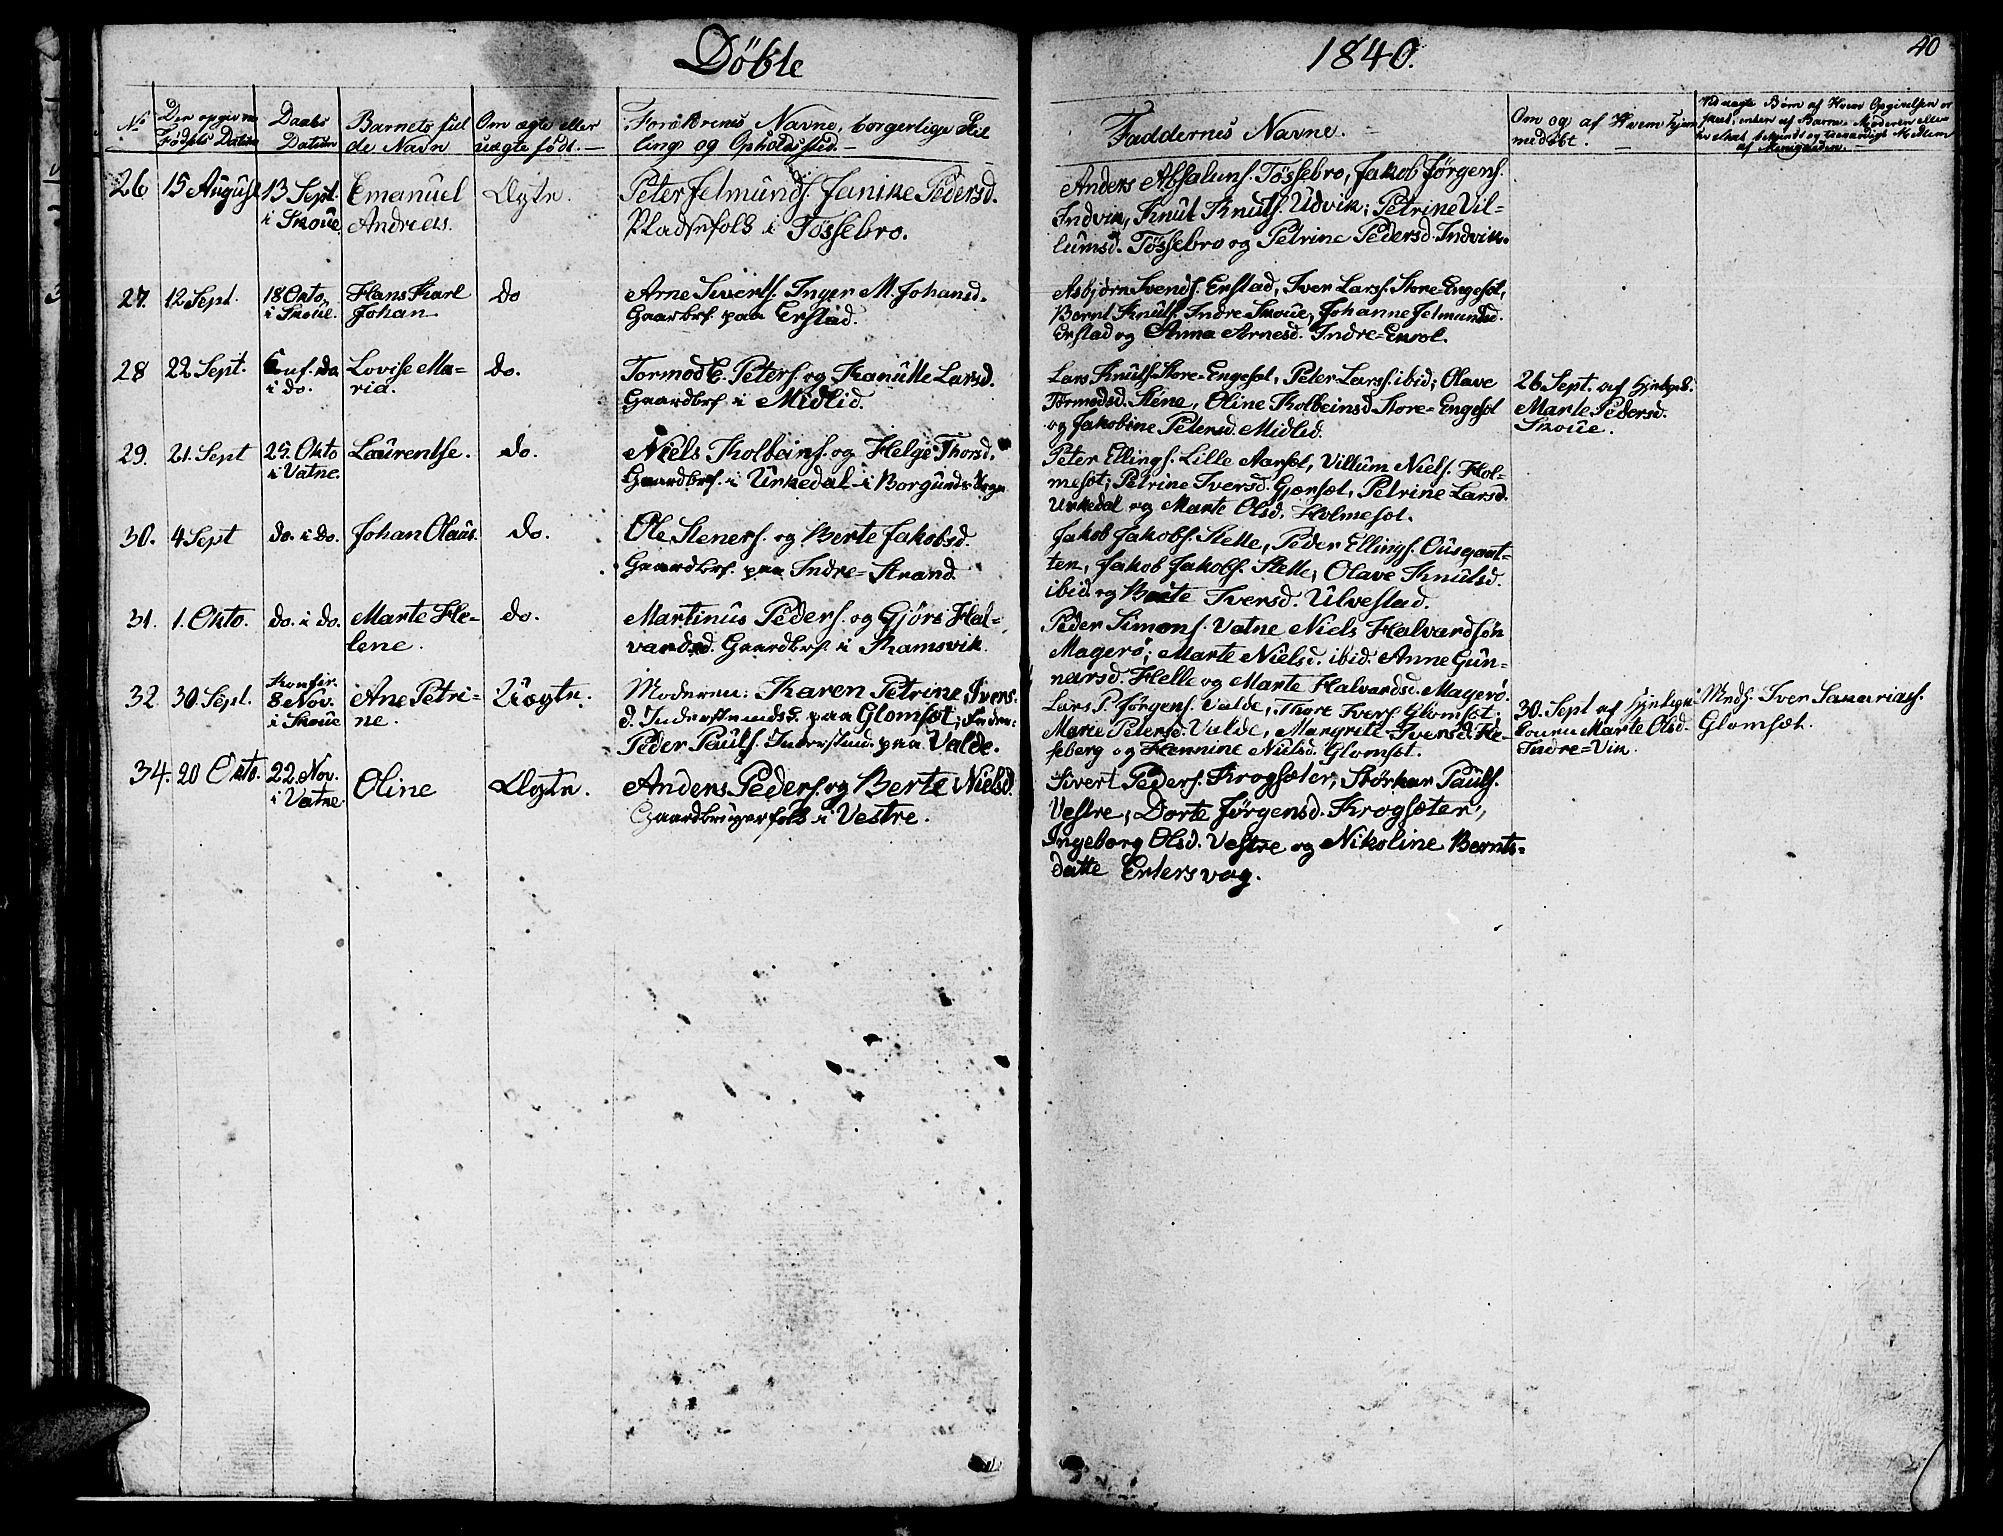 Döbte 1840. 40
No Den opgivne Födsels Datum Daabs Datum Barnets ful de Navn Om ægte eller uægte födt. — Forældrenes Navne, borgerlige Stil ling og Opholdssted. — Faddernes Navne. — Om og af Hvem hjem medöbt. —
26 15 August 13 Sept. i Skoue Emanuel Andreas. Ægte. Peter Jelmunds. Janike Pedersd. Pladsefolk i Tössebro.
Anders Absaluns. Tössebro, Jakob Jörgens.
Indvik, Knut Knuts. Udvik; Petrine Vil=
lumsd. Tössebro og Petrine Pedersd. Indvik.
27. 12 Sept. 18 Okto. i Skoue. Hans Karl Johan do Arne Siverts. Inger M. Johansd. Gaardbrf. paa Erstad.
Asbjørn Svends. Erstad, Iver Lars. Store-Engeset,
Bernt Knuts. Indre Skoue, Johanne Jelmundsd.
Erstad og Anna Arnesd. Indre=
28 22 Sept. i do. Lovise Ma= ria. do. Tormod E. Peters. og Kanutte Larsd. Gaardbrf. i Midlid.
Lars Knuts. Store-Engeset, Peter Lars. ibid; Olave
Tormodsd. Stene, Oline Kolbeinsd. Store-Engeset
og Jakobine Petersd. Midlid.
26 Sept. af
Marte Pedersd.
Skoue.
29. 21. Sept 25. Okto i Vatne. Laurentse. do. Niels Kolbeins. og Helge Thorsd. Gaardbrf. i Urkedal i Borgunds Sogn
Peter Ellings. Lille Aarset, Villum Niels. Hol=
meset; Petrine Iversd. Gjærset, Petrine Larsd.
Urkedal og Marte Olsd. Holmeset.
30. 4 Sept do. i do. Johan Olaus. do. Ole Steners. og Berte Jakobsd. Gaardbrf. paa Indre=Strand.
Jakob Jakobs. Stette, Peder Ellings.
Jakob Jakobs. Stette, Olave Knutsd.
ibid. og Berte Iversd. Ulvestad.
31. 1. Okto. do. i do. Marte He= lene. do. Martinus Peders. og Gjöre Hal= vardsd. Gaardbrf. i Kamsvik.
Peder Simons. Vatne Niels Halvardsön
Magerö; Marte Nielsd. ibid. Anne Gun=
narsd. Helle og Marte Halvardsd. Magerö.
32 30 Sept. Konfir. 8 Nov. i Skoue Ane Petri= ne. Uægte. Moderen: Karen Petrine Ivers= d. Inderstendsd. paa Glomset; Faderen: Peder Pauls. Inderstmd. paa Valde.
Lars P. Jörgens. Valde, Thore Ivers. Glomset;
Marie Petersd. Valde, Margrete Iversd. He=
seberg og Hennine Nielsd. Glomset.
30. Sept af
Marte Olsd.
Indre=Vik.
Mnds. Iver Sakarias.
Glomset.
34. 20 Okto. 22. Nov. i Vatne Oline Ægte. Anders Peders. og Berte Nielsd. Gaardbrugerfolk i Vestre.
Sivert Peders. Krogsæter, Störkar Pauls.
Vestre, Dorte Jörgensd. Krogsæter,
Ingeborg Olsd. Vestre og Nikoline Bernts=
datte Eitersvag.